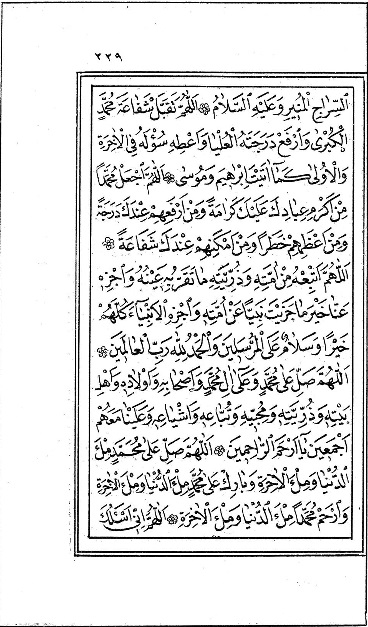 ٢٣٩
السِّرَاجِ الْمُنِيرِ وَعَلَيْهِ السَّلَامُ ۞ اَللّٰهُمَّ تَقَبَّلْ شَفَاعَةَ مُحَمَّدٍ
الْكُبْرٰى وَارْفَعْ دَرَجَتَهُ الْعُلْيَا وَاَعْطِهِ سُؤْلَهُ فِى الْاٰخِرَةِ
وَالْاُولٰى كَمَا اٰتَيْتَ اِبْرٰهِيمَ وَمُوسٰى ۞ اَللّٰهُمَّ اجْعَلْ مُحَمَّدًا
مِنْ اَكْرَمِ عِبَادِكَ عَلَيْكَ كَرَامَةً وَمِنْ اَرْفَعِهِمْ عِنْدَكَ دَرَجَةً
وَمِنْ اَعْظَمِهِمْ خَطَرًا وَمِنْ اَمْكَنِهِمْ عِنْدَكَ شَفَاعَةً ۞
اَللّٰهُمَّ اَتْبِعْهُ مِنْ اُمَّتِهِ وَذُرِّيَّتِهِ مَا تَقَرُّ بِهِ عَيْنُهُ وَاجْزِهِ
عَنَّا خَيْرَ مَا جَزَيْتَ نَبِيًّا عَنْ اُمَّتِهِ وَاجْزِ الْاَنْبِيَاءَ كُلَّهُمْ
خَيْرًا وَسَلَامٌ عَلَى الْمُرْسَلِينَ وَالْحَمْدُ لِلّٰهِ رَبِّ الْعَالَمِينَ ۞
اَللّٰهُمَّ صَلِّ عَلٰى مُحَمَّدٍ وَعَلٰى اٰلِ مُحَمَّدٍ وَاَصْحَابِهِ وَاَوْلَادِهِ وَاَهْلِ
بَيْتِهِ وَذُرِّيَّتِهِ وَمُحِبِّيهِ وَتُبَّاعِهِ وَاَشْيَاعِهِ وَعَلَيْنَا مَعَهُمْ
اَجْمَعِينَ يَا اَرْحَمَ الرَّاحِمِينَ ۞ اَللّٰهُمَّ صَلِّ عَلٰى مُحَمَّدٍ مِلْءَ
الدُّنْيَا وَمِلْءَ الْاٰخِرَةِ وَبَارِكْ عَلٰى مُحَمَّدٍ مِلْءَ الدُّنْيَا وَمِلْءَ الْاٰخِرَةِ
وَارْحَمْ مُحَمَّدًا مِلْءَ الدُّنْيَا وَمِلْءَ الْاٰخِرَةِ ۞ اَللّٰهُمَّ اِنِّى اَسْئَلُكَ